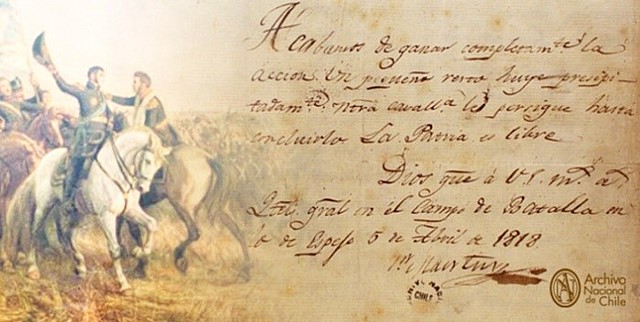 Acabamos de ganar completamte la
accion. Un pequeño resto huye presipi-
tadamte. Ntra cavalla le persigue hasta
concluirlo La Patria es libre
Dios gue á V.S. ms as
Qtel gral en el Campo de Batalla en
lo de Espejo 5 de Abril de 1818
Sn Martin
CHILE
Archivo
Nacional
de Chile